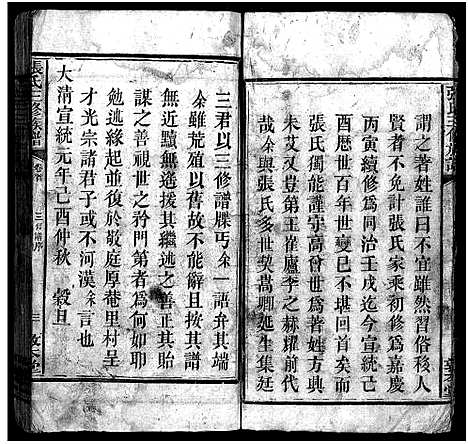 謂之著姓誰曰不宜雖然習俗移人
賢者不免計張氏家乘初修爲嘉慶
丙寅續修爲同治壬戌迄今宣統己
酉歷世百年世變已不堪回首矣而
張氏獨能謹守高曾遺
未艾又豈第王崔廬李之赫耀前代
哉余與張氏多世契萬興延生集廷
三君以三修譜牒丐余一語弁其端
余雖荒殖以舊故不能辭且按其譜
無近黷無遠援其繼述之善正其貽
謀之善視世之矜門第者爲何如耶
勉述並復於敬庭厚菴里村呈
才光宗諸君子或不河漢余言也
大淸宣統元年己酉仲秋 穀旦
張氏三修族譜 卷首 序 三